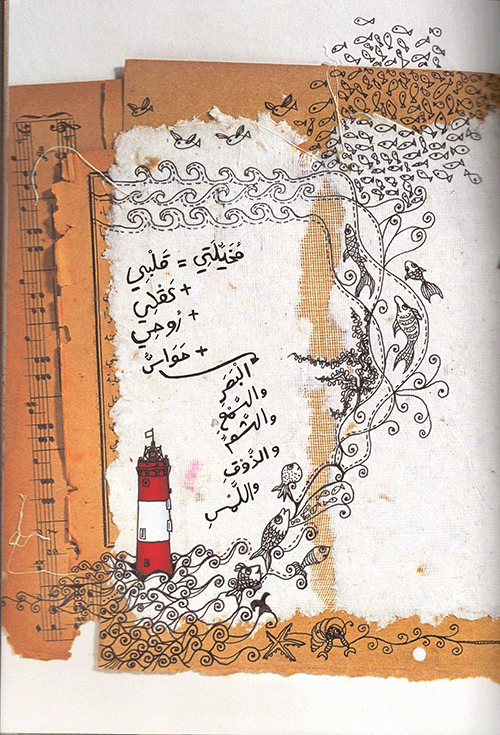 مُخَيِّلَتِي = قَلْبِي
+ عَقْلِي
+ رُوحِي
+ حَوَاسّ
البَصَرِ
والسَّمْعِ
والشَّمِّ
والذَّوْقِ
واللَّمْسِ